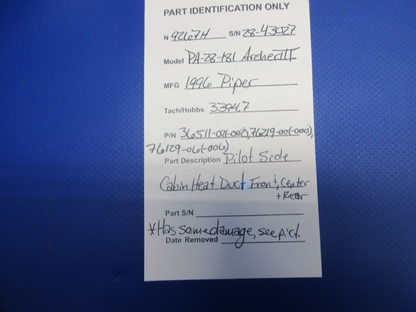 PART IDENTIFICATION ONLY
N 9267H S/N 28-43027
Model PA-28-181 Archer III
MFG 1996 Piper
Tach/Hobbs 3394.7
P/N 36511-021(-002), 76219-00(-000),
76129-06(-006)
Part Description Pilot Side
Cabin Heat Duct Front, Center
+ Rear
Part S/N
*Has some damage, see pict.
Date Removed